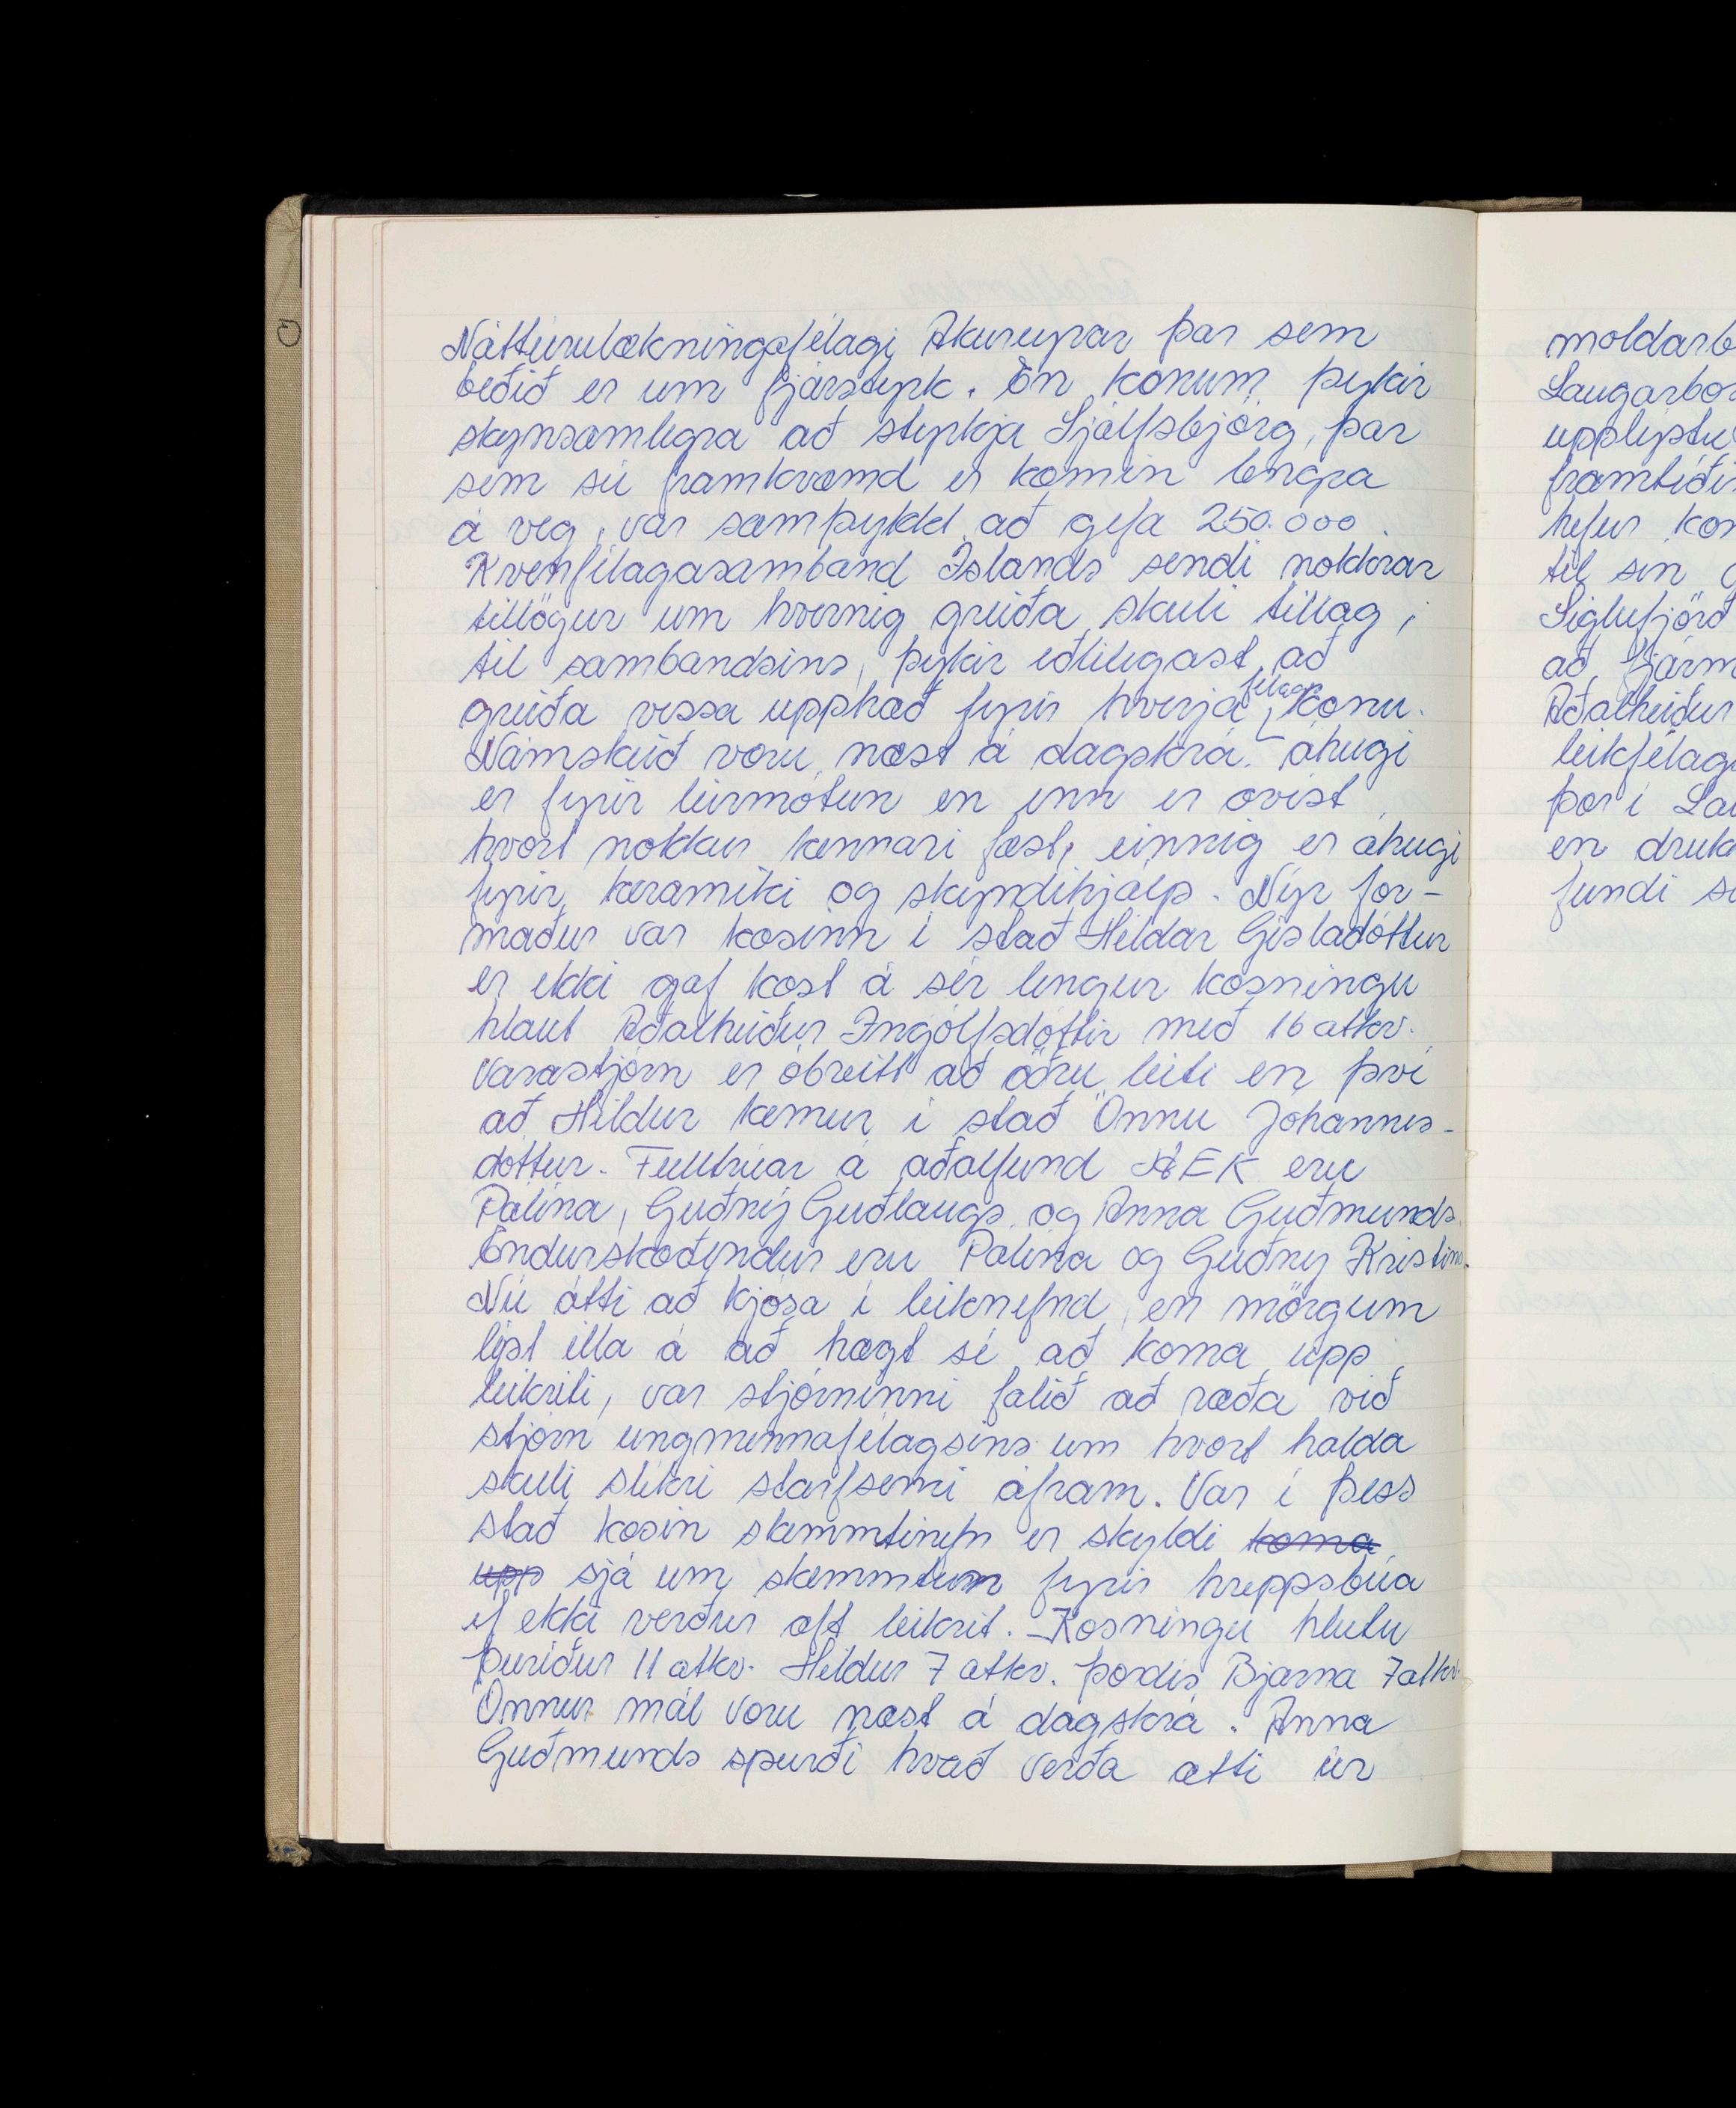 Náttúrulækningafélagi Akureyrar þar sem
beðið er um fjárstyrk. En konum þykir
skynsamlegra að styrkja Sjálfsbjörg, þar
sem sú framkvæmd er komin lengra
á veg, var samþykkt að gefa 250.000.
Kvenfélagasamband Íslands sendi nokkrar
tillögur um hvernig greiða skuli tillag,
til sambandsins, þykir eðlilegast að
greiða vissa upphæð fyrir hverja félags konu.
Námskeið voru næst á dagskrá. áhugi
er fyrir leirmótun en enn er óvíst
hvort nokkur kennari fæst, einnig er áhugi
fyrir keramiki og skyndihjálp. Nýr for-
maður var kosinn í stað Hildar Gísladóttur
er ekki gaf kost á sér lengur kosningu
hlaut Aðalheiður Ingólfsdóttir með 16 atkv.
Varastjórn er óbreitt að öðru leiti en því
að Hildur kemur í stað Önnu Jóhannes-
dóttur. Fulltrúar á aðalfund HEK eru
Pálína, Guðný Guðlaugs og Anna Guðmunds.
Endurskoðendur eru Pálína og Guðný Kristins.
Nú átti að kjósa í leiknefnd, en mörgum
lýst illa á að hægt sé að koma upp
leikriti, var stjórninni falið að ræða við
stjórn ungmennafélagsins um hvort halda
skuli slíkri starfsemi áfram. Var í þess
stað kosin skemmtinefn er skyldi koma
upp sjá um skemmtun fyrir hreppsbúa
ef ekki verður æft leikrit. Kosningu hlutu
Þuríður 11 atkv. Hildur 7 atkv. Þordís Bjarna 7 atkv.
Önnur mál voru næst á dagskrá. Anna
Guðmunds spurði hvað verða ætti úr
moldarb
Laugarbor
upplýstu
framtíðin
hefur kom
til sín
Siglufjörð
að fjárm
Aðalheiður
leikfélag
þor í Lau
en druk
fundi s